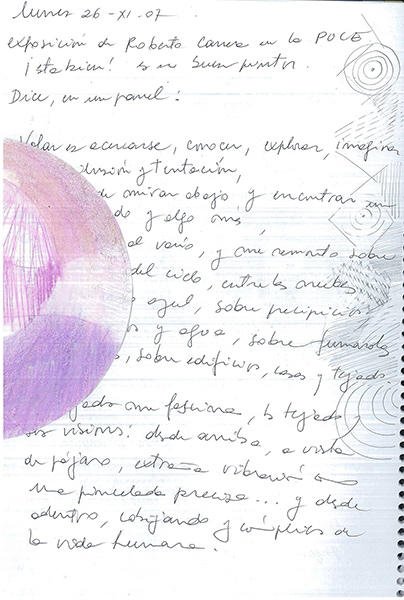 lunes 26-XI-07
exposición de Roberto Carrera en la PUCE
¡sta bien! es un buen pintor.
Dice, en un panel:
Volar es acercarse, conocer, explorar, imaginar
ilusión y tentación,
de mirar abajo y encontrar un
do y algo más,
al vacío, y me remonto sobre
del cielo, entre las nubes,
azul, sobre precipicios
y agua, sobre fumarolas
, sobre edificios, casas y tejados.
me fascina, los tejados
sus visiones: desde arriba, a vista
de pájaro, extraña vibración
una pincelada precisa... y desde
adentro, cobijando y cómplices de
la vida humana.